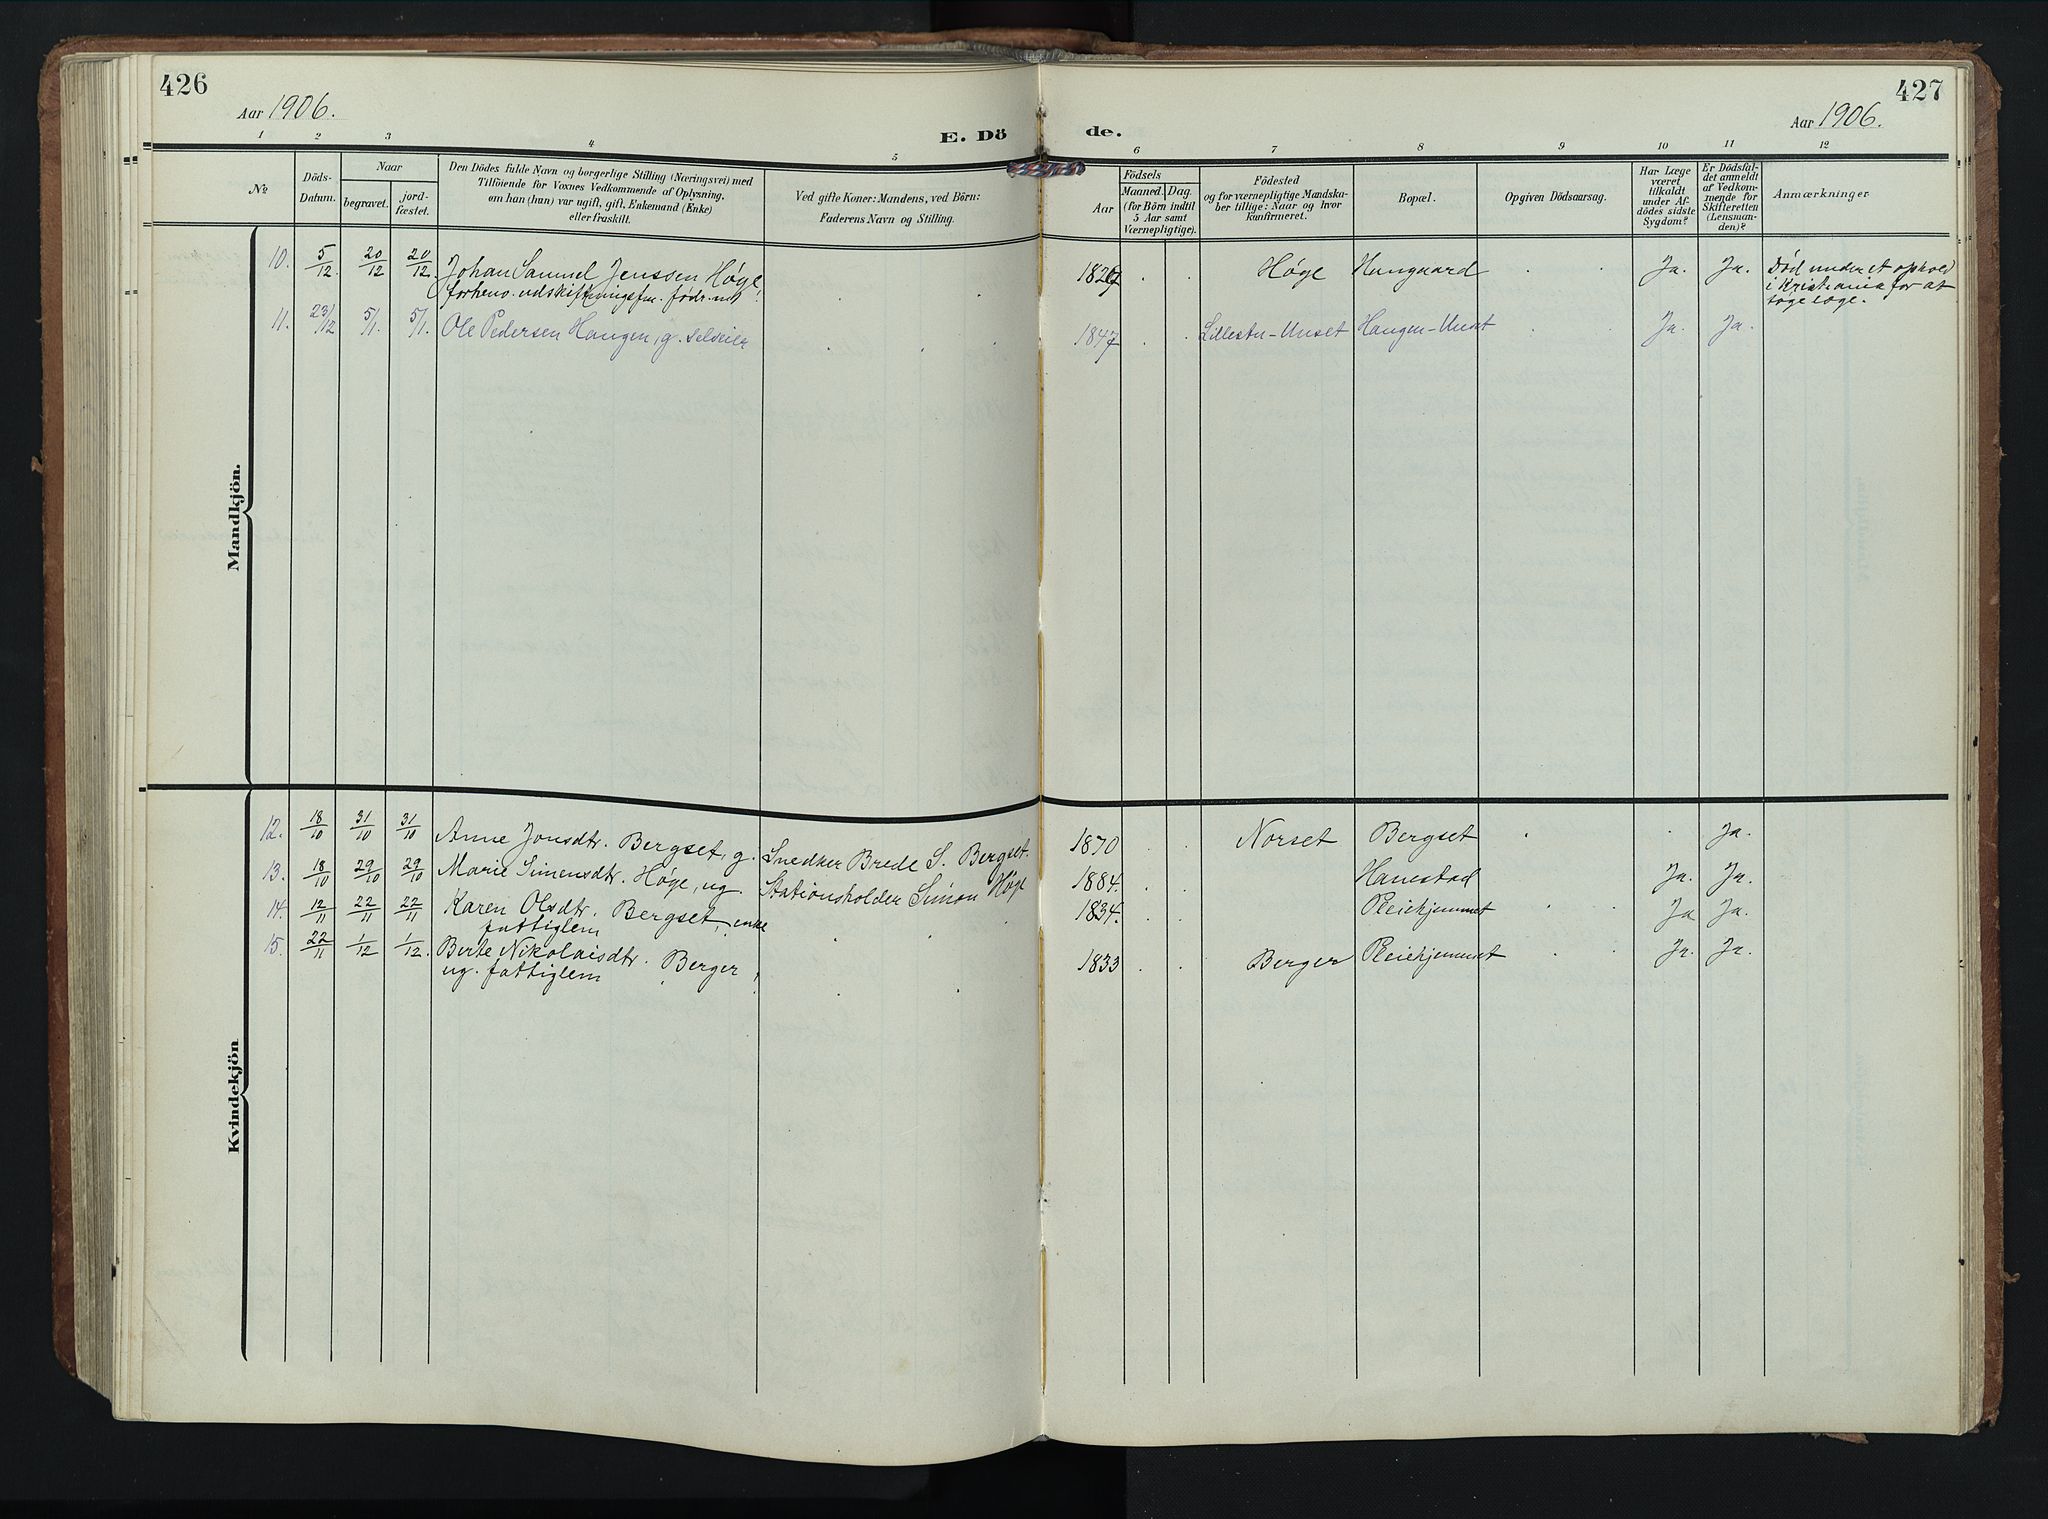 426
Aar 1906.
E. Dö
de.
427
Aar 1906.
1 2 3 4 5 6 7 8 9 10 11 12
No
Döds-
Datum.
Naar
begravet.
jord-
fæstet.
Den Dödes fulde Navn og borgerlige Stilling (Næringsvei) med
Tilföiende for Voxnes Vedkommende af Oplysning,
om han (hun) var ugift, gift, Enkemand (Enke)
eller fraskilt.
Ved gifte Koner: Mandens, ved Börn:
Faderens Navn og Stilling.
Födsels
Aar
Maaned. Dag.
(for Börn indtil
5 Aar samt
Værnepligtige).
Födested
og for værnepligtige Mandska-
ber tillige: Naar og hvor
konfirmeret.
Bopæl.
Opgiven Dödsaarsag.
Har Læge
været
tilkaldt
under Af-
dödes sidste
Sygdom?
Er Dödsfal-
det anmeldt
af Vedkom-
mende for
Skifteretten
(Lensman-
den)?
Anmærkninger
Mandkjön.
10. 5/12. 20/12 20/12. Johan Samuel Jenssen Høge, Høge Ja. Ja. Død under et ophold
forhenv. udskiftningsfm. i Kristiania for at
søge læge.
11. 23/12 5/1. 5/1. Ole Pedersen Haugen, g. selveier 1847 Lillestu-Unset Haugen-Unset Ja. Ja.
Kvindekjön
12. 18/10 31/10 31/10 Anne Jonsdtr. Bergset, g. Snedker Brede S. Bergset. 1870 Norset Bergset Ja.
13. 18/10 29/10 29/10 Marie Simensdtr. Høge, ug. Stationsholder Simon Høge 1884. Hanestad Ja. Ja.
14. 12/11 22/11 22/11 Karen Olsdtr. Bergset, enke 1834. Pleiehjemmet Ja Ja.
fattiglem
15. 22/11 1/12 1/12. Berte Nikolaisdtr. Berger, 1833 Berger Pleiehjemmet Ja. Ja.
ug. fattiglem